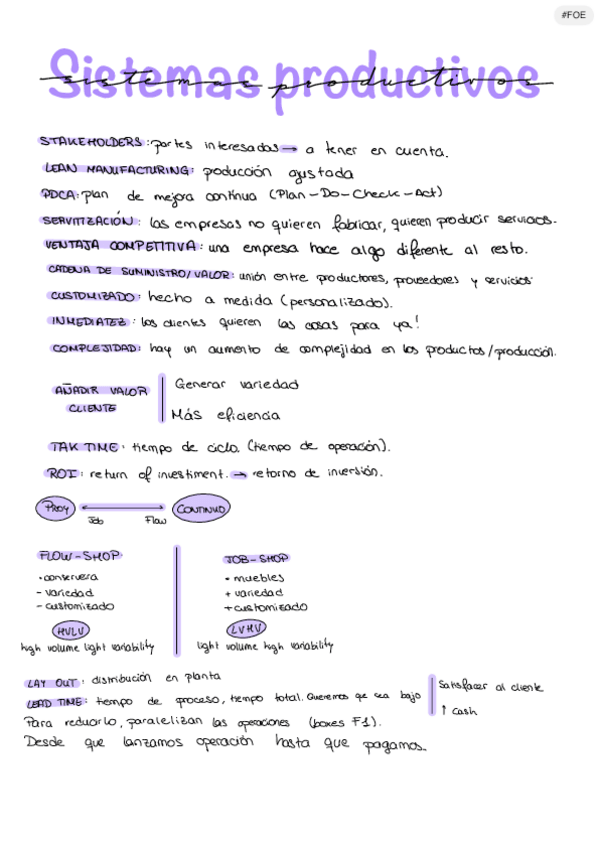 #FOE
Sistemas productivos
sistemas productivos
STAKEHOLDERS: partes interesadas → a tener en cuenta.
LEAN MANUFACTURING: poducción ajustada
PDCA: plan de mejora continua (Plan-Do-Check-Act)
SERVITIZACIÓN: las empresas no quieren fabricar, quieren producir servicios.
VENTAJA COMPETITIVA: una empresa hace algo diferente al resto.
CADENA DE SUMINISTRO/VALOR: unión entre productores, proveedores y servicios.
CUSTOMIZADO: hecho a medida (personalizado).
INMEDIATEZ: los clientes quieren las cosas para ya!
COMPLEJIDAD: hay un aumento de complejidad en los productos/producción.
AÑADIR VALOR CLIENTE
Generar variedad
Más eficiencia
TAK TIME: tiempo de ciclo. (tiempo de operación).
ROI: return of investiment. → retorno de inversión.
PROY ↔ CONTINUO
Job Flow
FLOW-SHOP
• conservera
- variedad
- customizado
HVLV
high volume light variability
JOB-SHOP
• muebles
+ variedad
+ customizado
LVHV
light volume high variability
LAY OUT: distribución en planta
LEAD TIME: tiempo de proceso, tiempo total. Queremos que sea bajo
Satisfacer al cliente
↑ Cash
Para reducirlo, paralelizan las operaciones (boxes F1).
Desde que lanzamos operación hasta que pagamos.